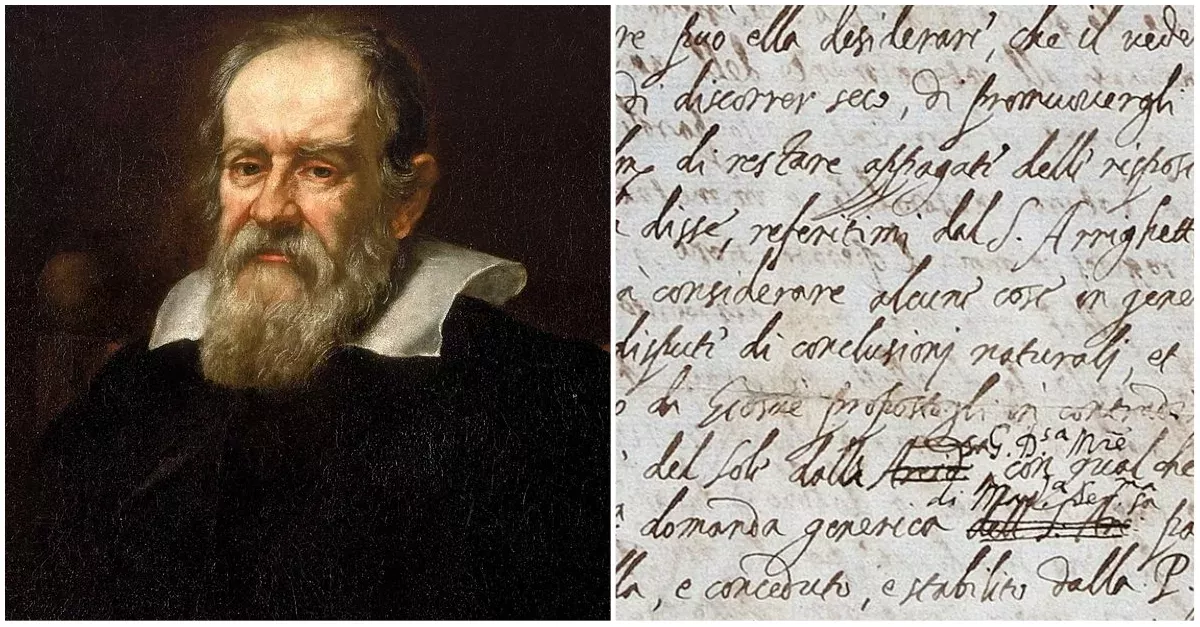 re può ella desiderare, che il vede
di discorrer seco, di promuovergli
di restare appagati delle rispost
disse, referitimi dal S. Arrighett
à considerare alcune cose in gene
dispute di conclusioni naturali, et
di Giosuè propostogli in contradi
del Sole dalla G. D.sa M.re con qualche
di Mad.a Ser.ma
domanda generica
lla, e conceduto, e stabilito dalla P.